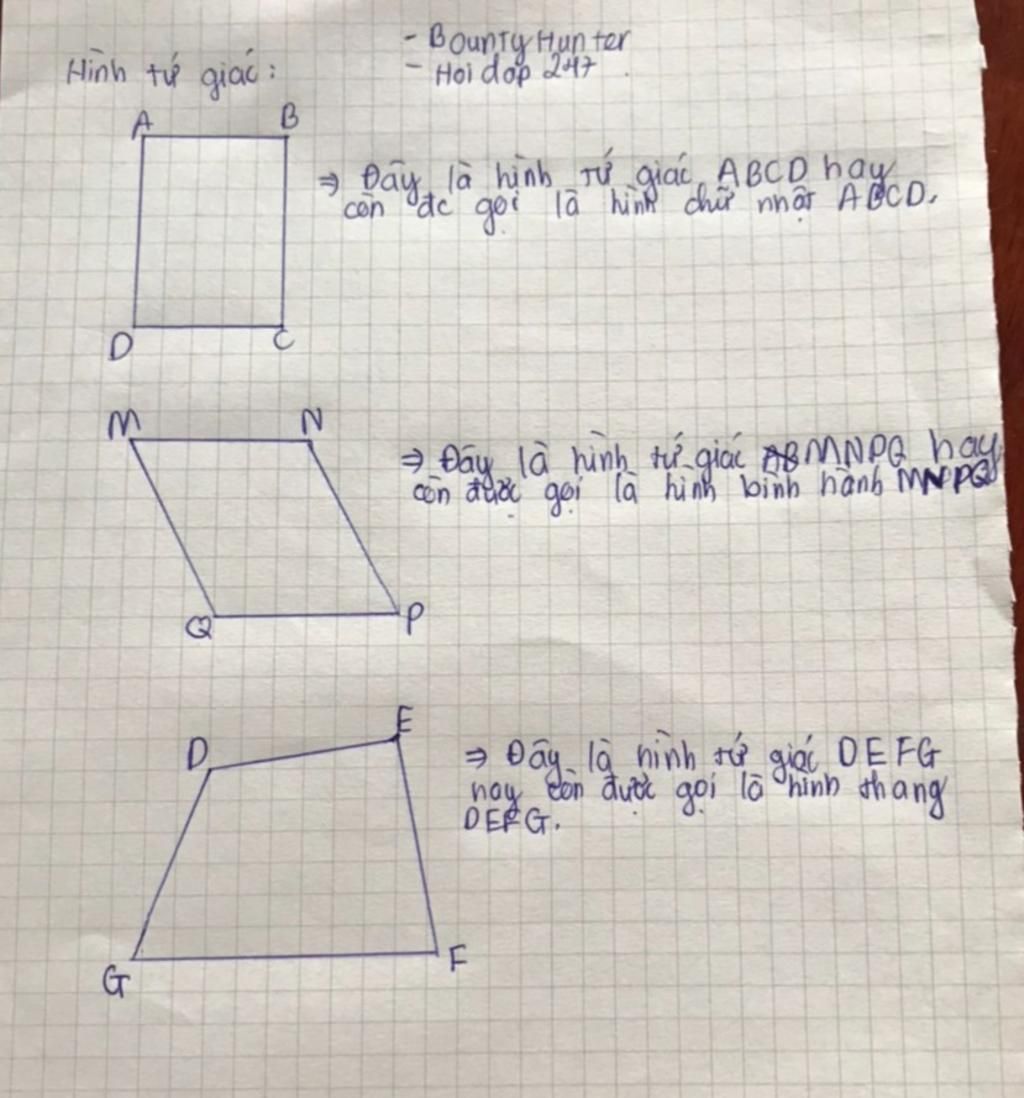 Hình tứ giác:
- BountyHunter
- Hoidap 247
A
B
⇒ Đây là hình tứ giác ABCD hay
còn đc gọi là hình chữ nhật ABCD.
D
C
M
N
⇒ Đây là hình tứ giác MNPQ hay
còn được gọi là hình bình hành MNPQ
Q
P
D
E
⇒ Đây là hình tứ giác DEFG
hay còn được gọi là hình thang
DEFG.
G
F